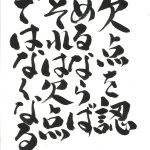 欠点を認
めるならば
それは欠点
ではなくなる